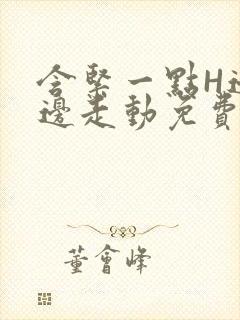 含緊一點H邊
邊走動免費
董會峰